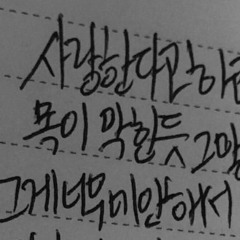 사랑한다관하
목이 막힌듯 그만
그게너무미안해서